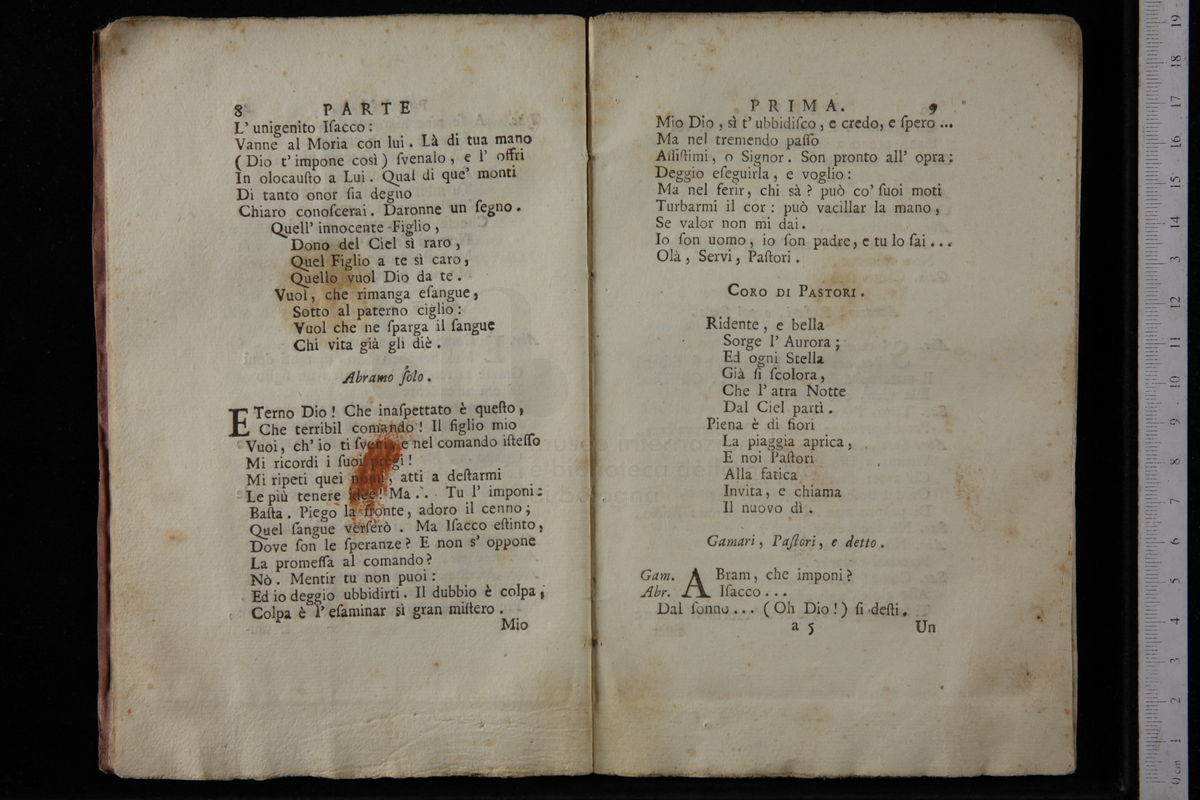 8 PARTE
L' unigenito Iſacco:
Vanne al Moria con lui. Là di tua mano
(Dio t' impone così) ſvenalo, e l' offri
In olocauſto a Lui. Qual di que' monti
Di tanto onor ſia degno
Chiaro conoſcerai. Daronne un ſegno.
Quell' innocente Figlio,
Dono del Ciel sì raro,
Quel Figlio a te sì caro,
Quello vuol Dio da te.
Vuol, che rimanga eſangue,
Sotto al paterno ciglio:
Vuol che ne ſparga il ſangue
Chi vita già gli diè.
Abramo ſolo.
ETerno Dio! Che inaſpettato è queſto,
Che terribil comando! Il figlio mio
Vuoi, ch' io ti ſveni, e nel comando iſteſſo
Mi ricordi i ſuoi pregi!
Mi ripeti quei nomi, atti a deſtarmi
Le più tenere idee! Ma... Tu l' imponi:
Baſta. Piego la fronte, adoro il cenno;
Quel ſangue verſerò. Ma Iſacco eſtinto,
Dove ſon le ſperanze? E non s' oppone
La promeſſa al comando?
Nò. Mentir tu non puoi:
Ed io deggio ubbidirti. Il dubbio è colpa;
Colpa è l' eſaminar sì gran miſtero.
Mio
PRIMA. 9
Mio Dio, sì t' ubbidiſco, e credo, e ſpero...
Ma nel tremendo paſſo
Aſſiſtimi, o Signor. Son pronto all' opra;
Deggio eſeguirla, e voglio:
Ma nel ferir, chi sà? può co' ſuoi moti
Turbarmi il cor: può vacillar la mano,
Se valor non mi dai.
Io ſon uomo, io ſon padre, e tu lo ſai...
Olà, Servi, Paſtori.
CORO DI PASTORI.
Ridente, e bella
Sorge l' Aurora;
Ed ogni Stella
Già ſi ſcolora,
Che l' atra Notte
Dal Ciel partì.
Piena è di fiori
La piaggia aprica,
E noi Paſtori
Alla fatica
Invita, e chiama
Il nuovo dì.
Gamari, Paſtori, e detto.
Gam. ABram, che imponi?
Abr. Iſacco...
Dal ſonno... (Oh Dio!) ſi deſti.
a 5 Un